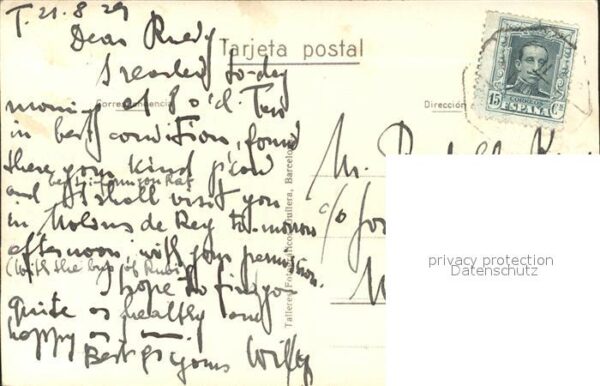 T. 21. 8. 29
Dear Rudy
Tarjeta postal
I reached to-day
morning at 8 o'cl.
Correspondencia
Dirección
in best condition, found
there your kind p'card
and I shall visit you
in Molins de Rey to-morrow
afternoon with your permission.
(With the
I hope to find you
quite as healthy and
happy as
Best gr. yours Willy
Talleres Barcelona
15 CORREOS Cs
ESPAÑA
M.
c/o
privacy protection
Datenschutz